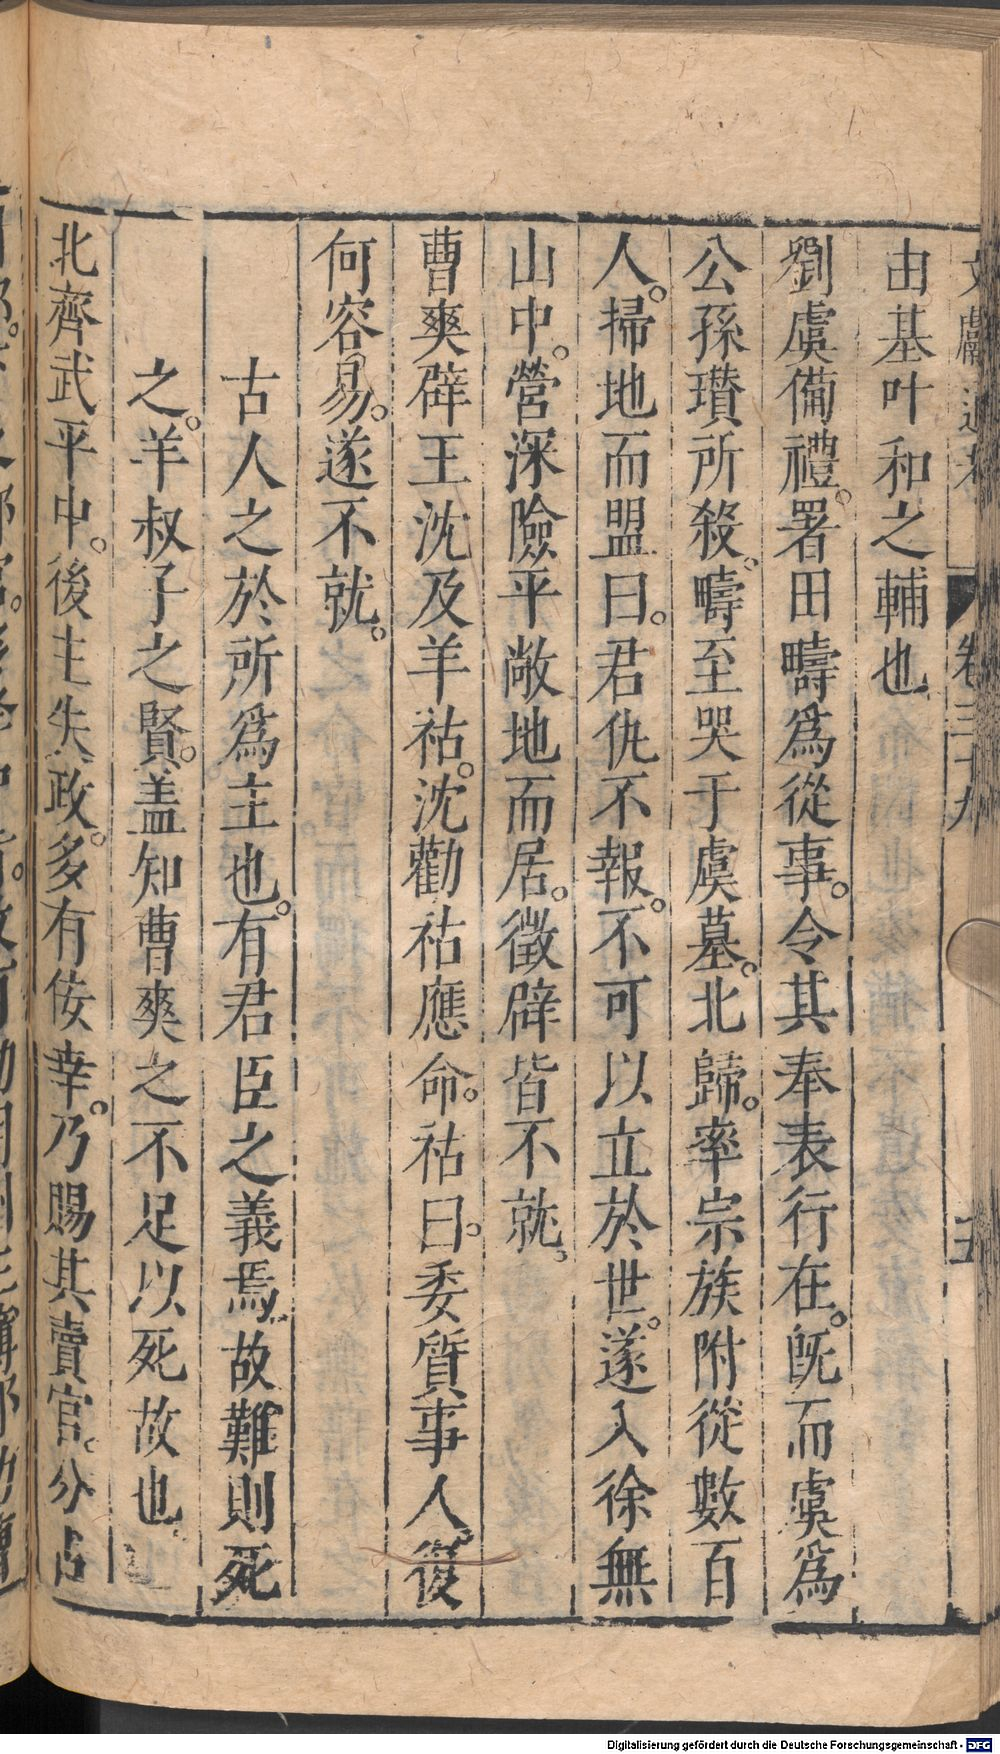 文獻通考 卷三十九 五
由基叶和之輔也
劉虞備禮。署田疇爲從事。令其奉表行在。旣而虞爲
公孫瓚所殺。疇至哭于虞墓。北歸。率宗族附從數百
人。掃地而盟曰。君仇不報。不可以立於世。遂入徐無
山中。營深險平敞地而居。徵辟皆不就。
曹爽辟王沈及羊祜。沈勸祜應命。祜曰。委質事人。復
何容易。遂不就。
古人之於所爲主也。有君臣之義焉。故難則死
之。羊叔子之賢。盖知曹爽之不足以死故也
北齊武平中。後主失政。多有佞幸。乃賜其賣官。分占
Digitalisierung gefördert durch die Deutsche Forschungsgemeinschaft - DFG